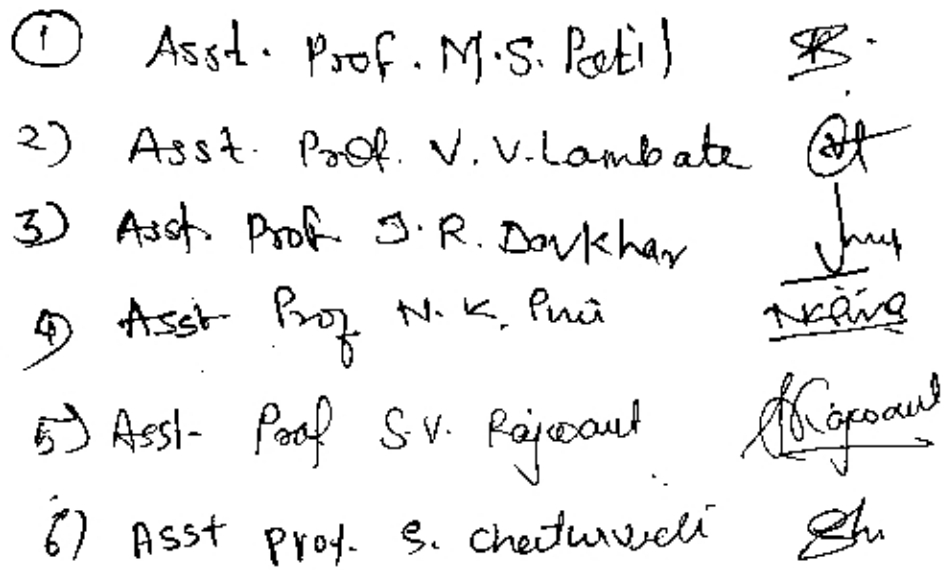 1 Asst. Prof. M.S. Patil
2) Asst. Prof. V.V. Lambate
3) Asst. Prof J.R. Davkhar
4) Asst Prof N.K. Puri
5) Asst- Prof S.V. Rajwaut
6) Asst Prof. S. Chaturvedi